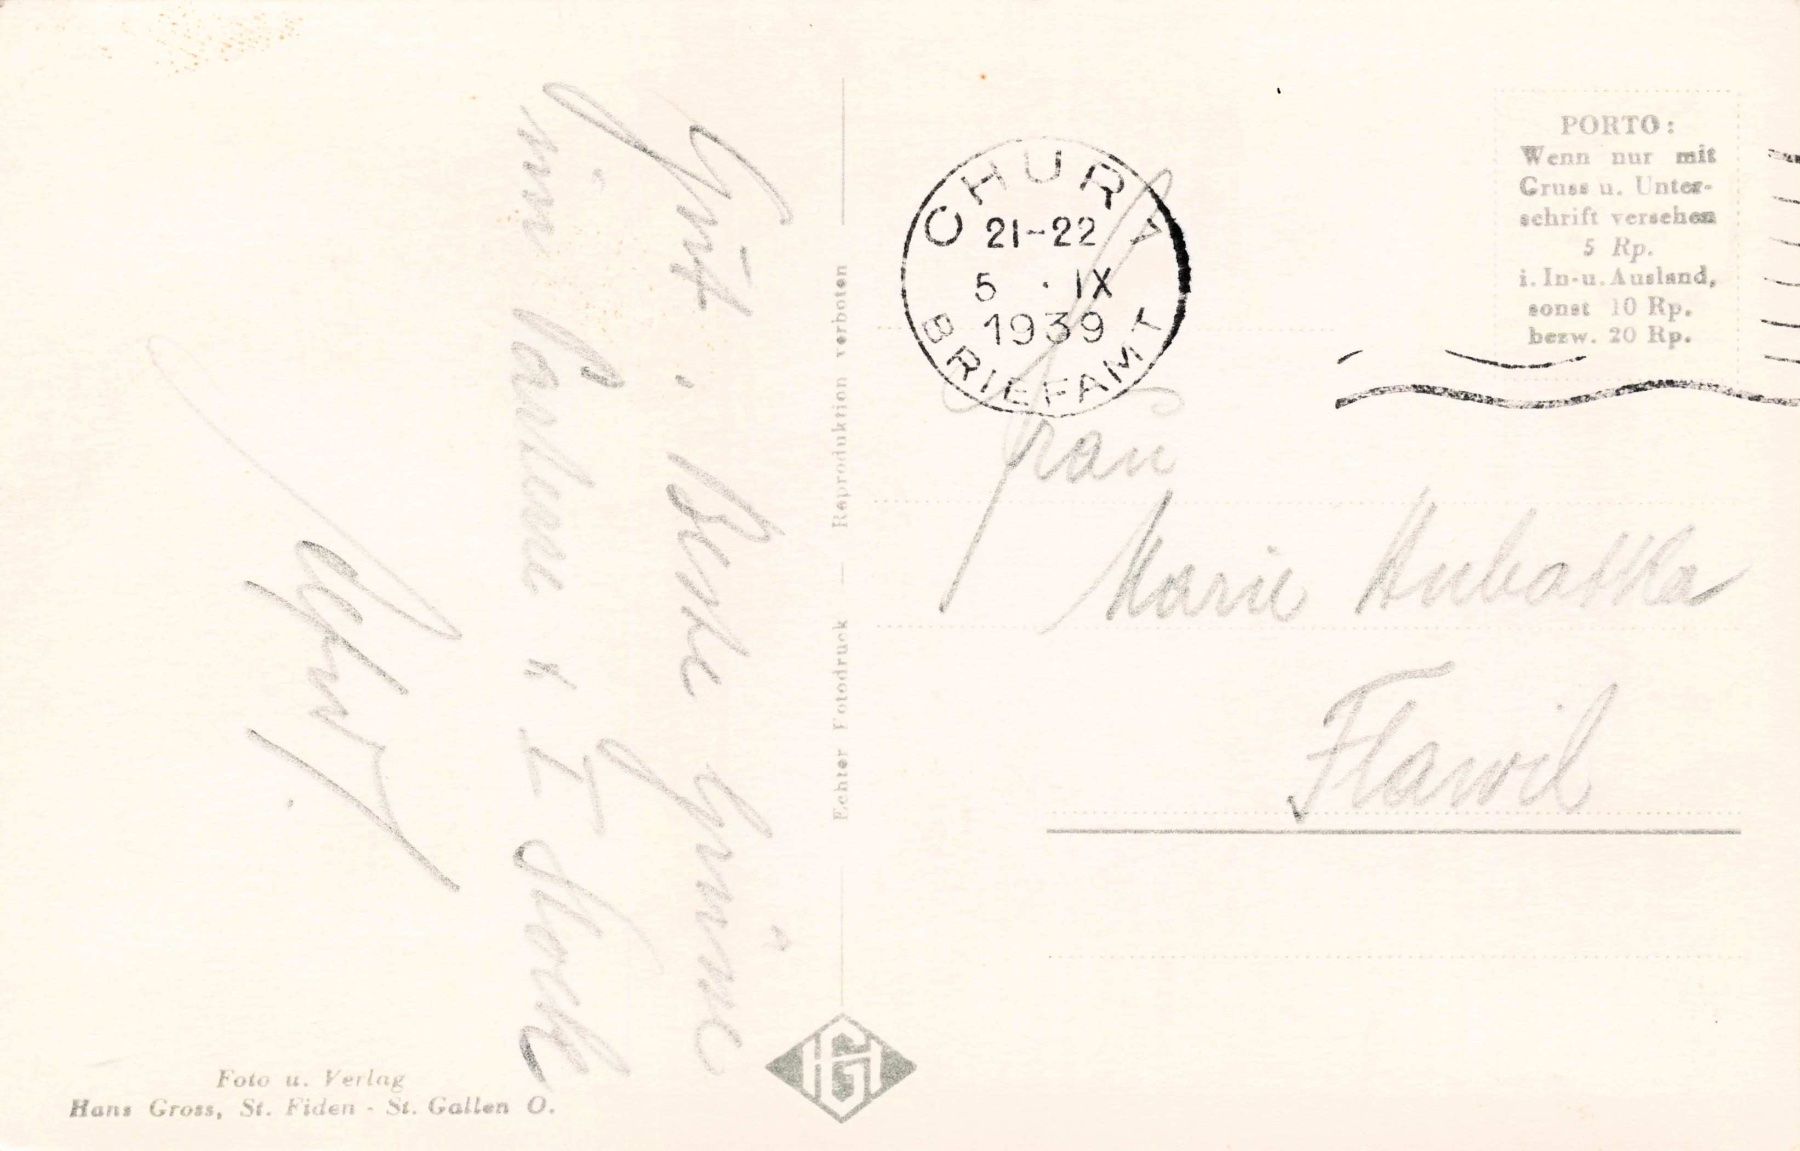 Beste Grüsse
im Parterre & I Stock
CHUR 1
21-22
5 . IX
1939
BRIEFAMT
PORTO:
Wenn nur mit
Gruss u. Unter-
schrift versehen
5 Rp.
i. In- u. Ausland,
sonst 10 Rp.
bezw. 20 Rp.
Frau
Marie Hubatka
Flawil
Echter Fotodruck — Reproduktion verboten
HG
Foto u. Verlag
Hans Gross, St. Fiden - St. Gallen O.